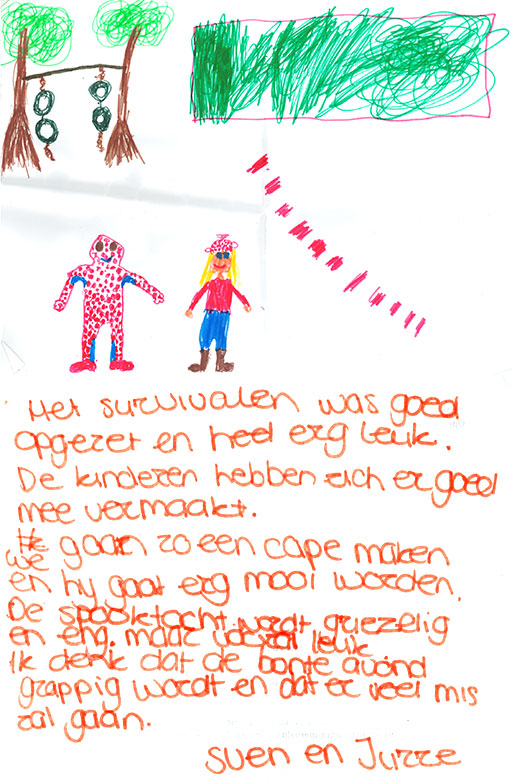 Het survivalen was goed
opgezet en heel erg leuk.
De kinderen hebben zich er goed
mee vermaakt.
we gaan zo een cape maken
en hy gaat erg mooi worden.
De spooktocht wordt griezelig
en eng, maar vooral leuk
Ik denk dat de bonte avond
grappig wordt en dat er veel mis
zal gaan.
Suen en Jurre